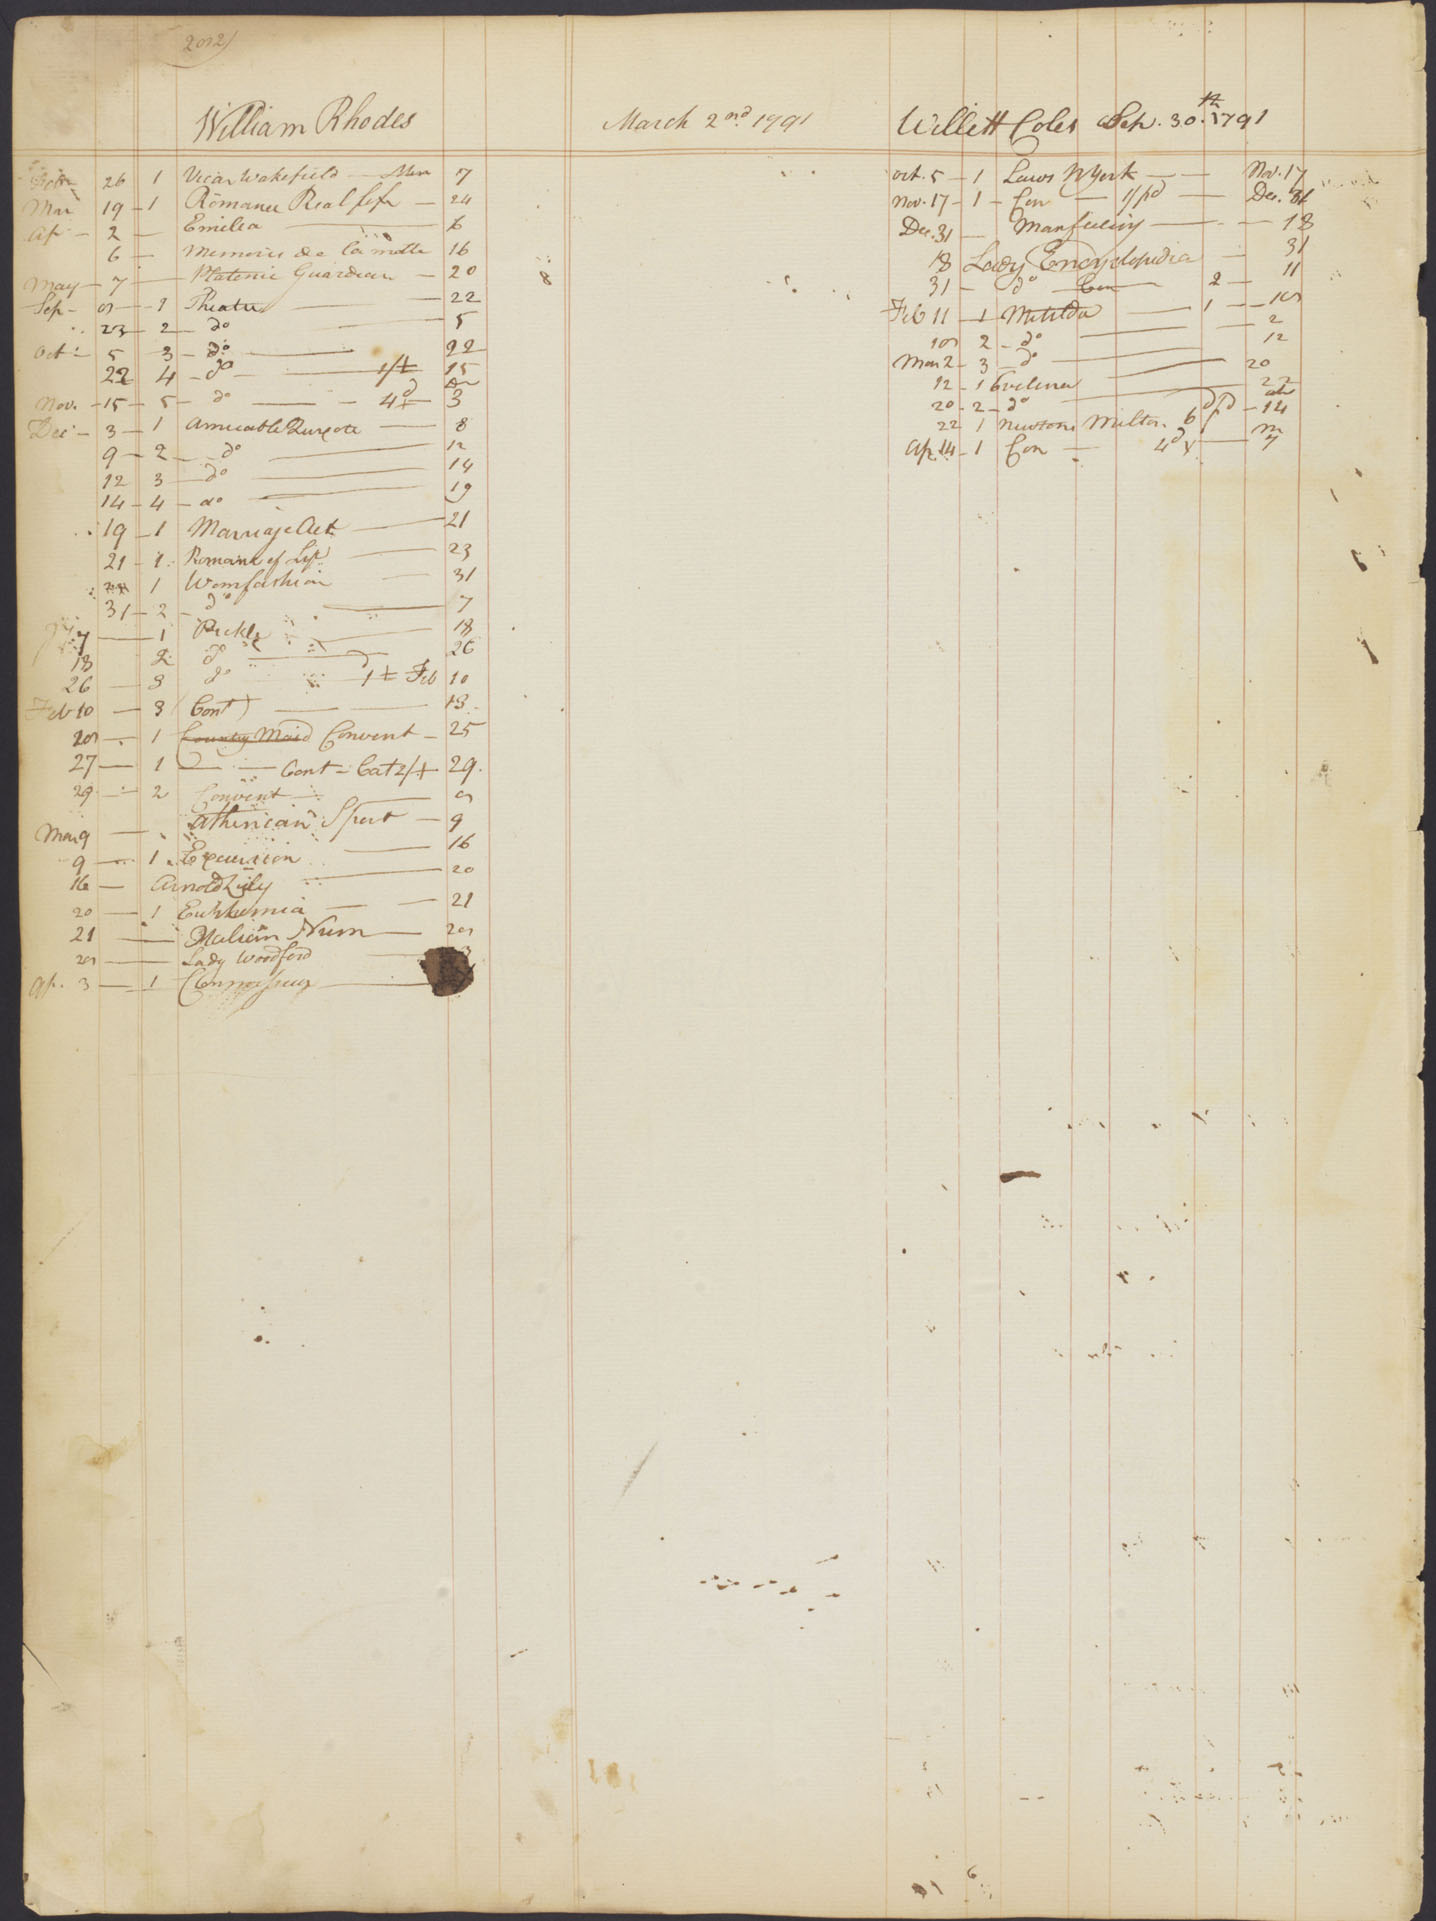 202
William Rhodes March 2nd 1791
Feb 26 1 Vicar Wakefield Mar 7
Mar 19 1 Romance Real life 24
Ap 2 Emilea 6
6 Memoirs de la motte 16
May 7 Platonic Guardian 20
Sep 1 Theatre 22
23 2 do 5
Oct 5 3 do 22
22 4 do 1/ 15
Nov. 15 5 do 4d 3
Dec 3 1 Amicable Quixote 8
9 2 do 12
12 3 do 14
14 4 do 19
19 1 Marriage Act 21
21 1 Romance of Life 23
1 Wom fashion 31
31 2 do 7
7 1 Pickle 18
18 2 do 26
26 3 do 1 Feb 10
Feb 10 3 (Cont) 18
20 1 Country Maid Convent 25
27 1 Cont Cat 2/ 29
29 2 Convent
Mar 9 Athenian Sport 9
9 1 Excursion 16
16 Arnold Zuly 20
20 1 Euphemia 21
21 Italian Nun
Lady Woodford
Ap. 3 1 Connoisseur
Willett Coles Sep. 30th 1791
Oct. 5 1 Laws N York Nov. 17
Nov. 17 1 Con 1/pd Dec. 31
Dec. 31 Man feeling 18
18 Lady Encyclopedia 31
31 do Con 2 11
Feb 11 1 Matilda 1
2 do 2
Mar 2 3 do 12
12 1 Evelina 20
20 2 do 22
22 1 Newtons Milton 6d pd 14
Ap. 14 1 Con 4d 7